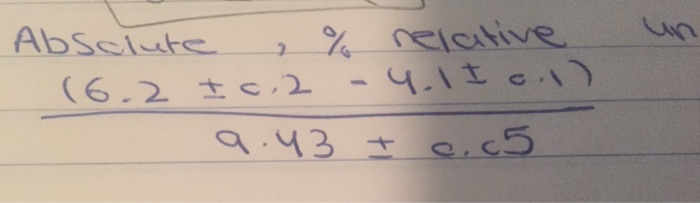 Absolute , % relative un
(6.2 ± 0.2 - 4.1 ± 0.1)
9.43 ± 0.05